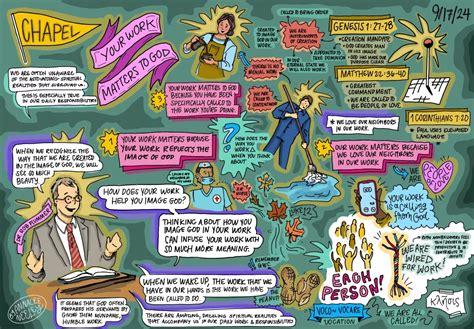 CHAPEL
YOUR WORK
MATTERS TO GOD
WE ARE OFTEN UNAWARE
OF THE
REALITIES THAT SURROUND US.
THIS IS ESPECIALLY TRUE
IN OUR DAILY RESPONSIBILITIES
CALLED TO BRING ORDER
CREATED TO
IMAGE GOD IN
OUR WORK.
WE ARE
INSTRUMENTS
OF CREATION
THERE IS NO
MENIAL WORK
IN THE ETERNAL STATE, WE
WILL ALSO WORK.
GENESIS 1:27-28
• CREATION MANDATE
• GOD CREATES MAN
IN HIS IMAGE
• GOD HAS MADE OUR
PURPOSE CLEAR.
MATTHEW 22:36-40
• GREATEST
COMMANDMENT
• WE ARE CALLED TO
BE PEOPLE OF LOVE.
9/17/24
1 CORINTHIANS 7:20
• PAUL USES
LANGUAGE
YOUR WORK MATTERS TO GOD
BECAUSE YOU HAVE BEEN
SPECIFICALLY CALLED TO
THE WORK YOU'RE DOING.
WE ARE
CALLED TO
* WE LOVE OUR NEIGHBORS
IN OUR WORK.
YOUR WORK MATTERS BECAUSE
YOUR WORK REFLECTS THE
IMAGE OF GOD
HOW DOES
THE WAY YOU
WORK
WHEN YOU
THINK ABOUT
OUR WORK MATTERS BECAUSE
WE LOVE OUR NEIGHBORS
IN OUR WORK.
PEOPLE
OF LOVE
WHEN WE RECOGNIZE THE
WAY THAT WE ARE CREATED
IN THE IMAGE OF GOD, WE WILL
SEE SO MUCH
BEAUTY.
HOW DOES YOUR WORK
HELP YOU IMAGE GOD?
THINKING ABOUT HOW YOU
IMAGE GOD IN YOUR WORK
CAN INFUSE YOUR WORK WITH
SO MUCH MORE MEANING.
GOD
YOUR WORK
IS A CALLING
FROM GOD
WE ARE
WIRED FOR
WORK!
EACH
PERSON!
VOCO → VOCARE
LOCATION
WE ARE ALL
CALLED
WHEN WE WAKE UP, THE WORK THAT
WE HAVE IN OUR HANDS IS THE WORK WE HAVE
BEEN CALLED TO DO.
THERE ARE AMAZING, DAZZLING SPIRITUAL REALITIES
THAT ACCOMPANY US IN OUR DAILY WORK & RESPONSIBILITIES
IT SEEMS THAT GOD OFTEN
PREPARES HIS SERVANTS BY
GIVING THEM MUNDANE,
HUMBLE WORK.